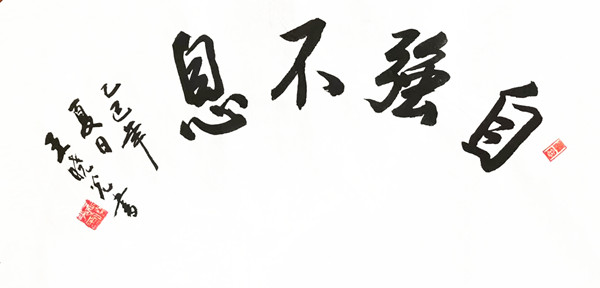 自強不息
乙巳年
夏日
王晓光書